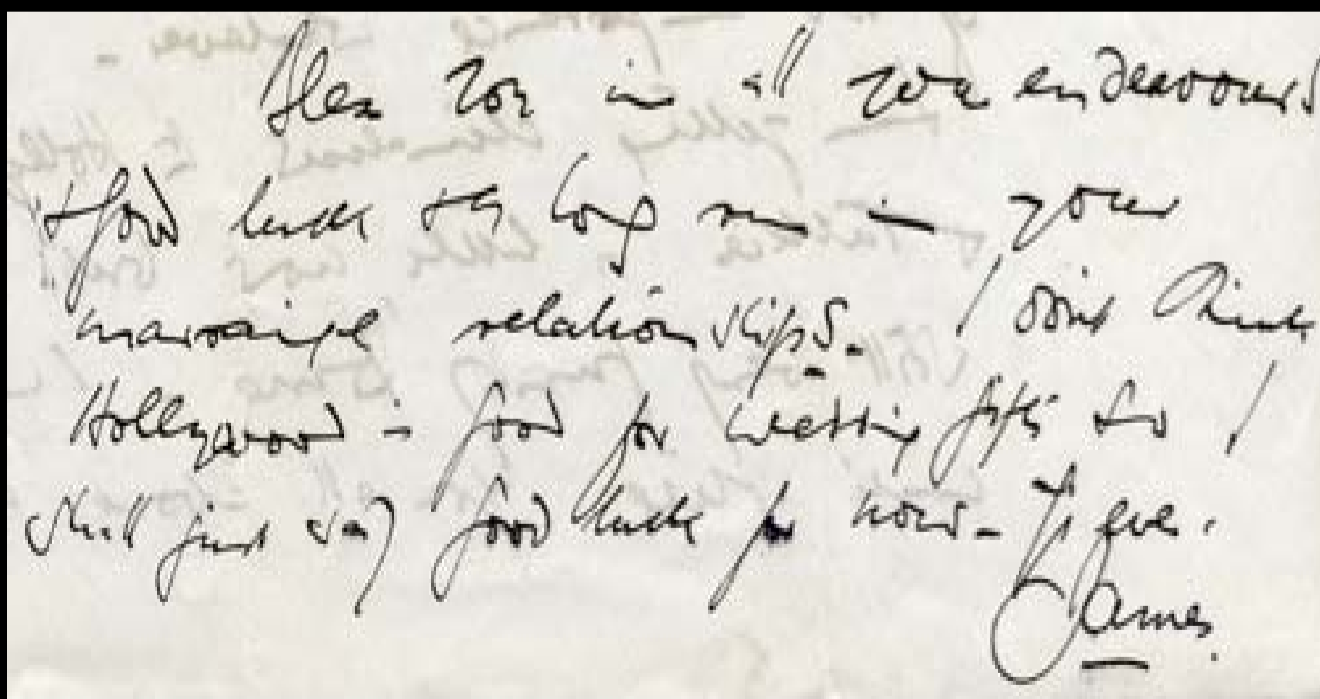 Bless you in all your endeavours
+ good luck + a long run in your
marraige relationships. I don't think
Hollywood is good for wedding gifts so I
shall just say good luck for now -
James.